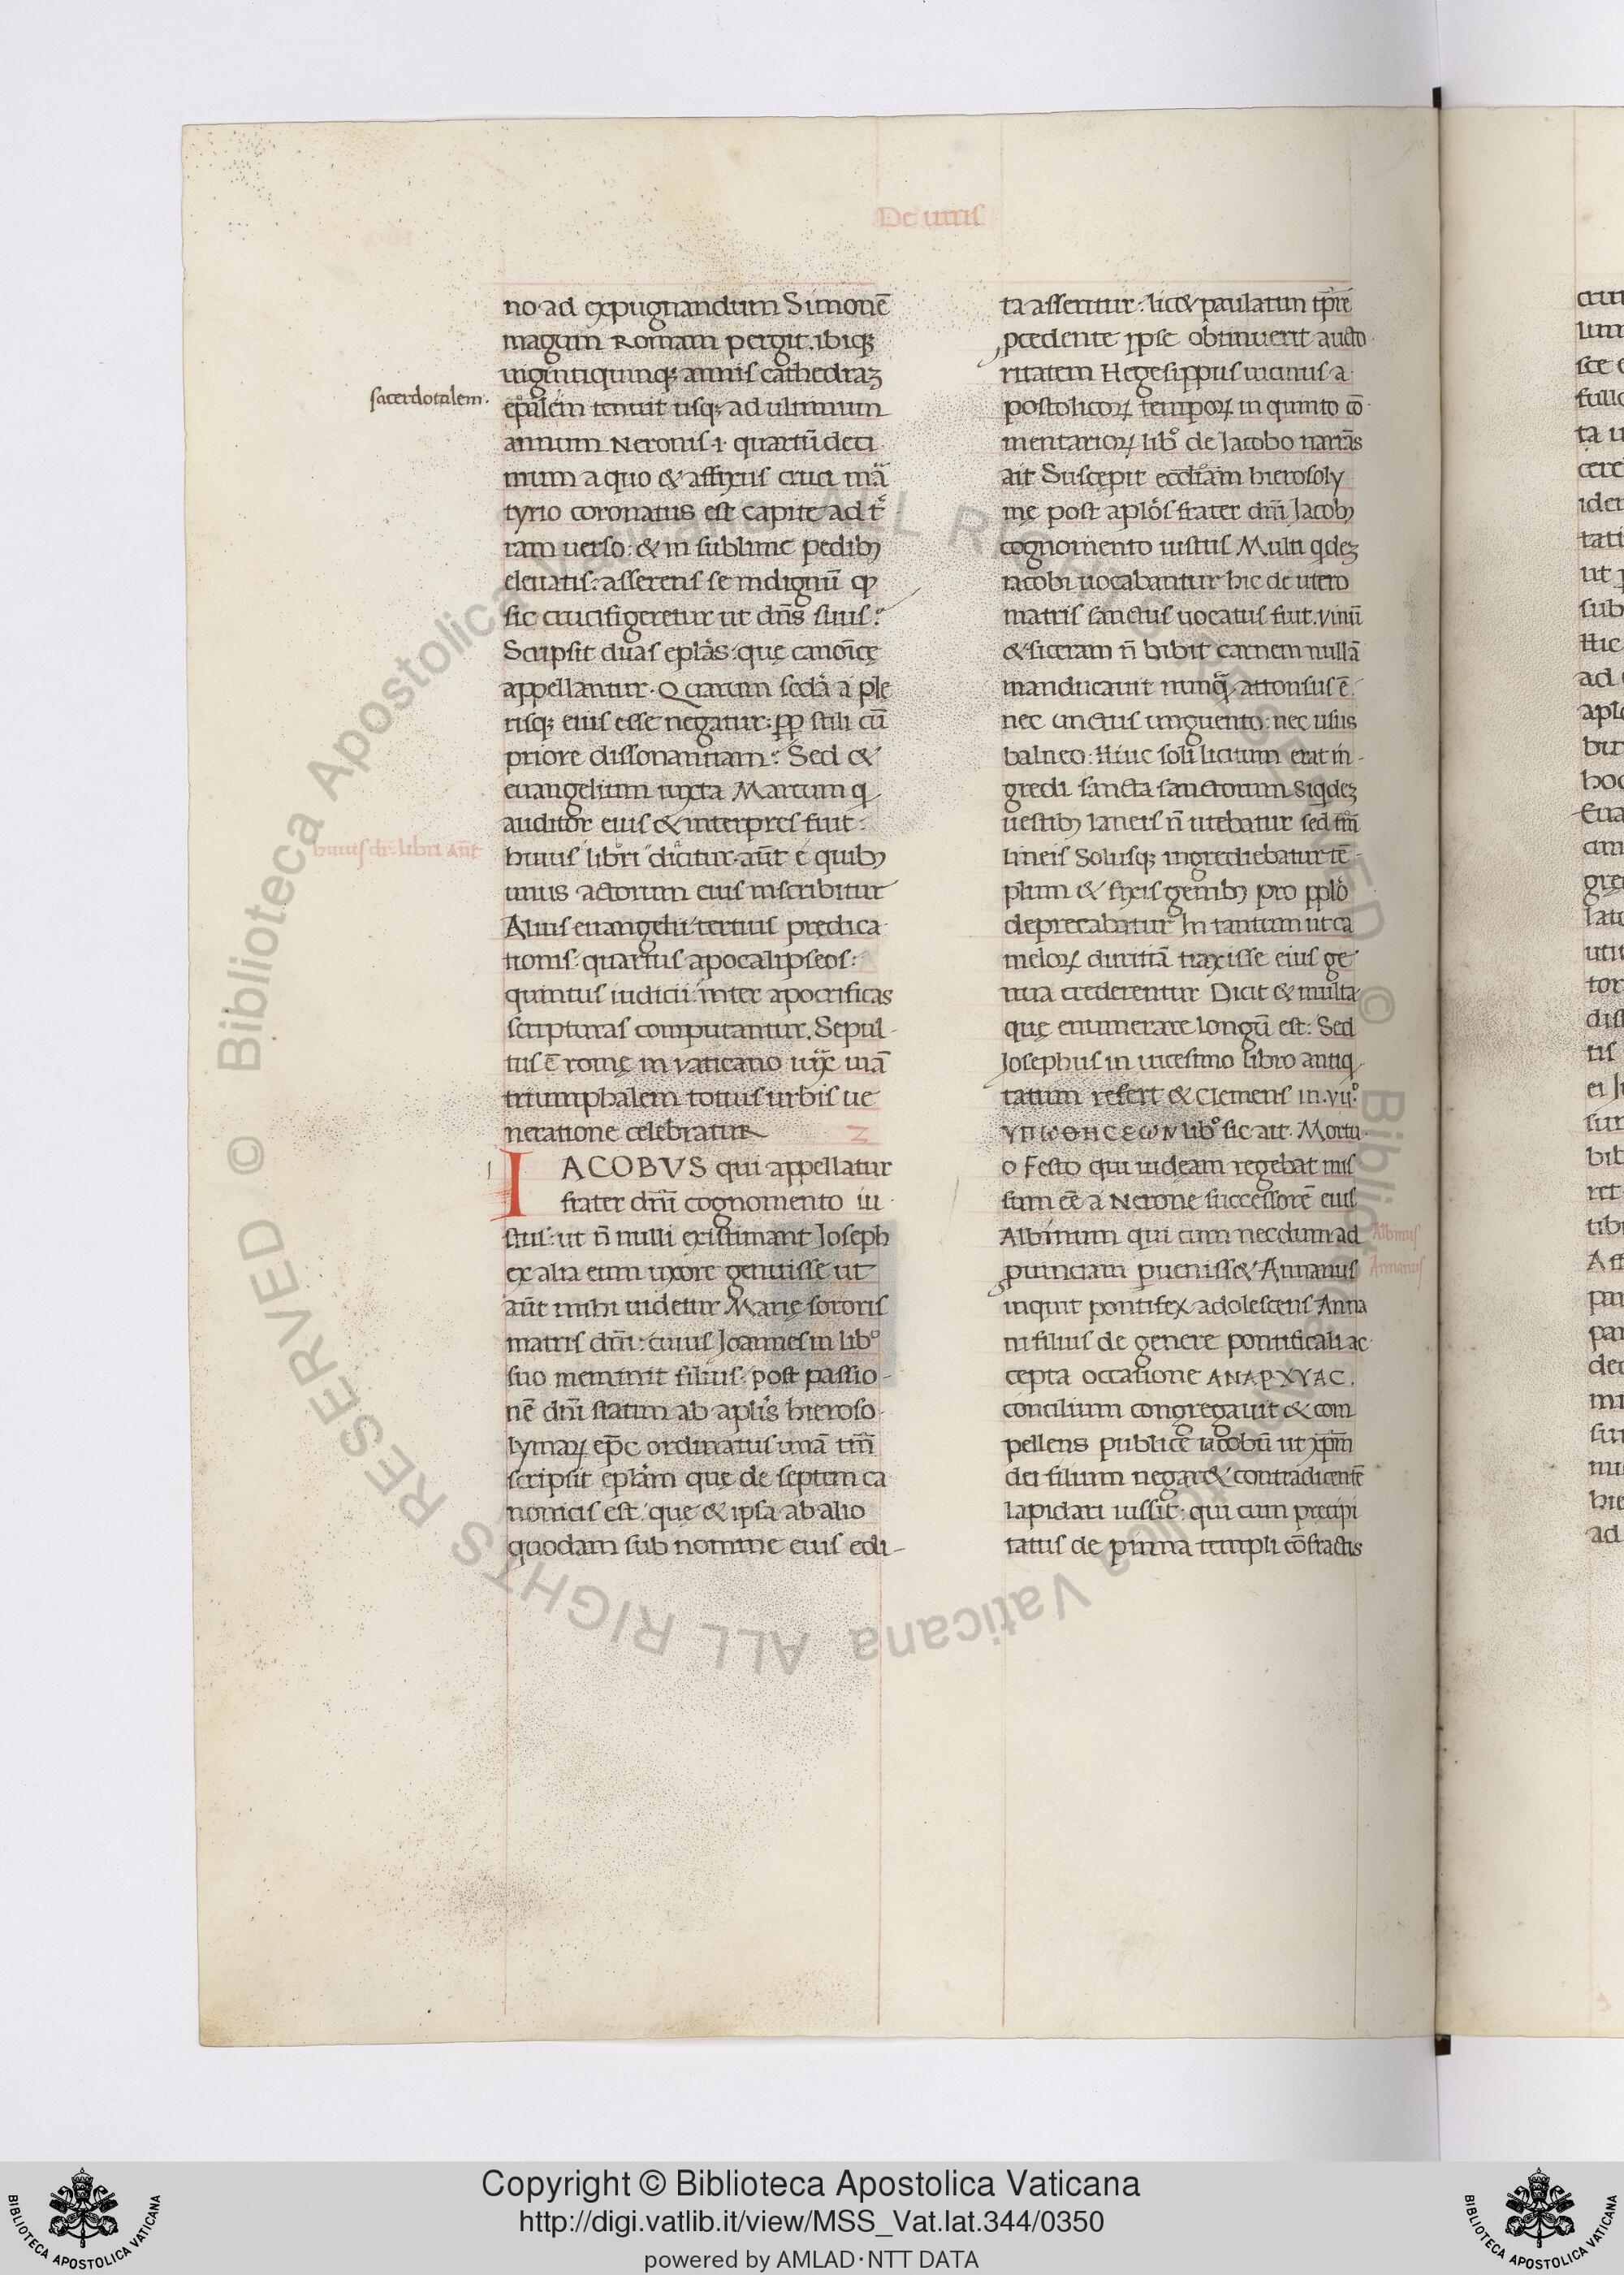 De uiris
no ad expugnandum Simonē
magum Romam pergit. ibiq;
uigintiquinq; annis cathedraꝫ
sacerdotalem.
ep̄alem tenuit usq; ad ultimum
annum Neronis .i. quartū deci
mum a quo & affixus cruci ma
tyrio coronatus est capite ad t
ram uerso: & in sublime pedibꝫ
eleuatis: asserens se indignū ꝙ
sic crucifigeretur ut dn̄s suus:
Scripsit duas epl̄as: quę canonicę
appellantur. Quarum secd̄a a ple
risq; eius esse negatur: ꝓp stili cū
priore dissonantiam: Sed &
euangelium iuxta Marcum q
auditor eius & interpres fuit:
huius dr̄: libri aūt
huius libri dicitur. aūt e quibꝫ
unus actorum eius inscribitur
Alius euangelii tertius predica
tionis: quartus apocalipseos:
quintus iudicii: inter apocrificas
scripturas computantur. Sepul-
tus ē romę in vaticano iux uiā
triumphalem totius urbis ue
neratione celebratur
IACOBVS qui appellatur
frater dn̄i cognomento iu
stus: ut n̄ nulli existimant Joseph
ex alia eum uxore genuisse ut
aūt mihi uidetur Marię sororis
matris dn̄i: cuius Joannes in libº
suo meminit filius: post passio-
nē dn̄i statim ab apl̄is hieroso
lymaꝝ ep̄c ordinatus unā tm̄
scripsit epl̄am quę de septem ca
nonicis est: que & ipsa ab alio
quodam sub nomine eius edi-
ta asseritur: lic& paulatim tp̄re
ꝓcedente ipse obtinuerit aucto
ritatem Hegesippus uicinus a
postolicoꝝ tempoꝝ in quinto cō
mentarioꝝ libº de Jacobo narrās
ait Suscepit eccl̄iam hierosoly
mę post apl̄os frater dn̄i Jacobꝫ
cognomento iustus Multi qdeꝫ
iacobi uocabantur hic de utero
matris sanctus uocatus fuit. vinū
& siceram n̄ bibit carnem nullā
manducauit nunq̄ attonsus ē
nec unctus unguento: nec usus
balneo: Huic soli licitum erat in-
gredi sancta sanctorum siqdeꝫ
uestibꝫ laneis n̄ utebatur sed tm̄
lineis Solusq; ingrediebatur tē-
plum & fixis genibꝫ pro ppl̄o
deprecabatur In tantum ut ca
meloꝝ duritiā traxisse eius ge
nua crederentur Dicit & multa
quę enumerare longū est: Sed
Josephus in uicesimo libro antiq
tatum refert & Clemens in .vii.º
ΥΠѠΘΗCΕѠΝ libº sic ait. Mortu-
o Festo qui iudeam regebat mis
sum eē a Nerone successorē eius
Albinum qui cum necdum ad
Albinus
ꝓuinciam ꝑuenisset Annanus
Annanus
inquit pontifex adolescens Anna
ni filius de genere pontificali ac
cepta occasione ΑΝΑΡΧΥΑC.
concilium congregauit & com
pellens publice iacobū ut xp̄m
dei filium negar& contradicentē
lapidari iussit: qui cum precipi
tatus de pinna templi cōfractis